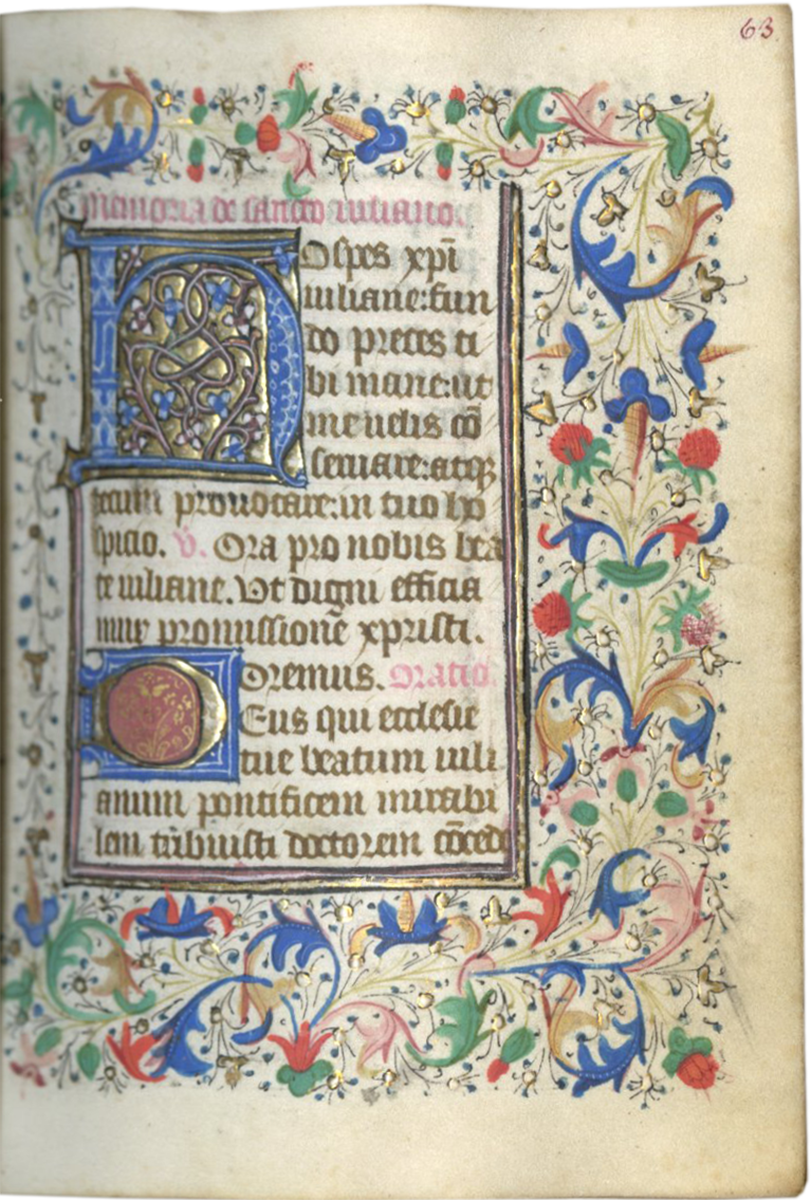 63
memoria de sancto iuliano.
Hospes xp̄i
iuliane: fun
do preces ti
bi mane: ut
me uelis cō
seruare: atqꝫ
tecum prouocare: in tuo ho
spicio. v̄. Ora pro nobis bea
te iuliane. Ut digni efficia
mur promissione xpristi.
Oremus. Oratio.
Deus qui ecclesie
tue beatum iuli
anum pontificem mirabi
lem tribuisti doctorem cōced